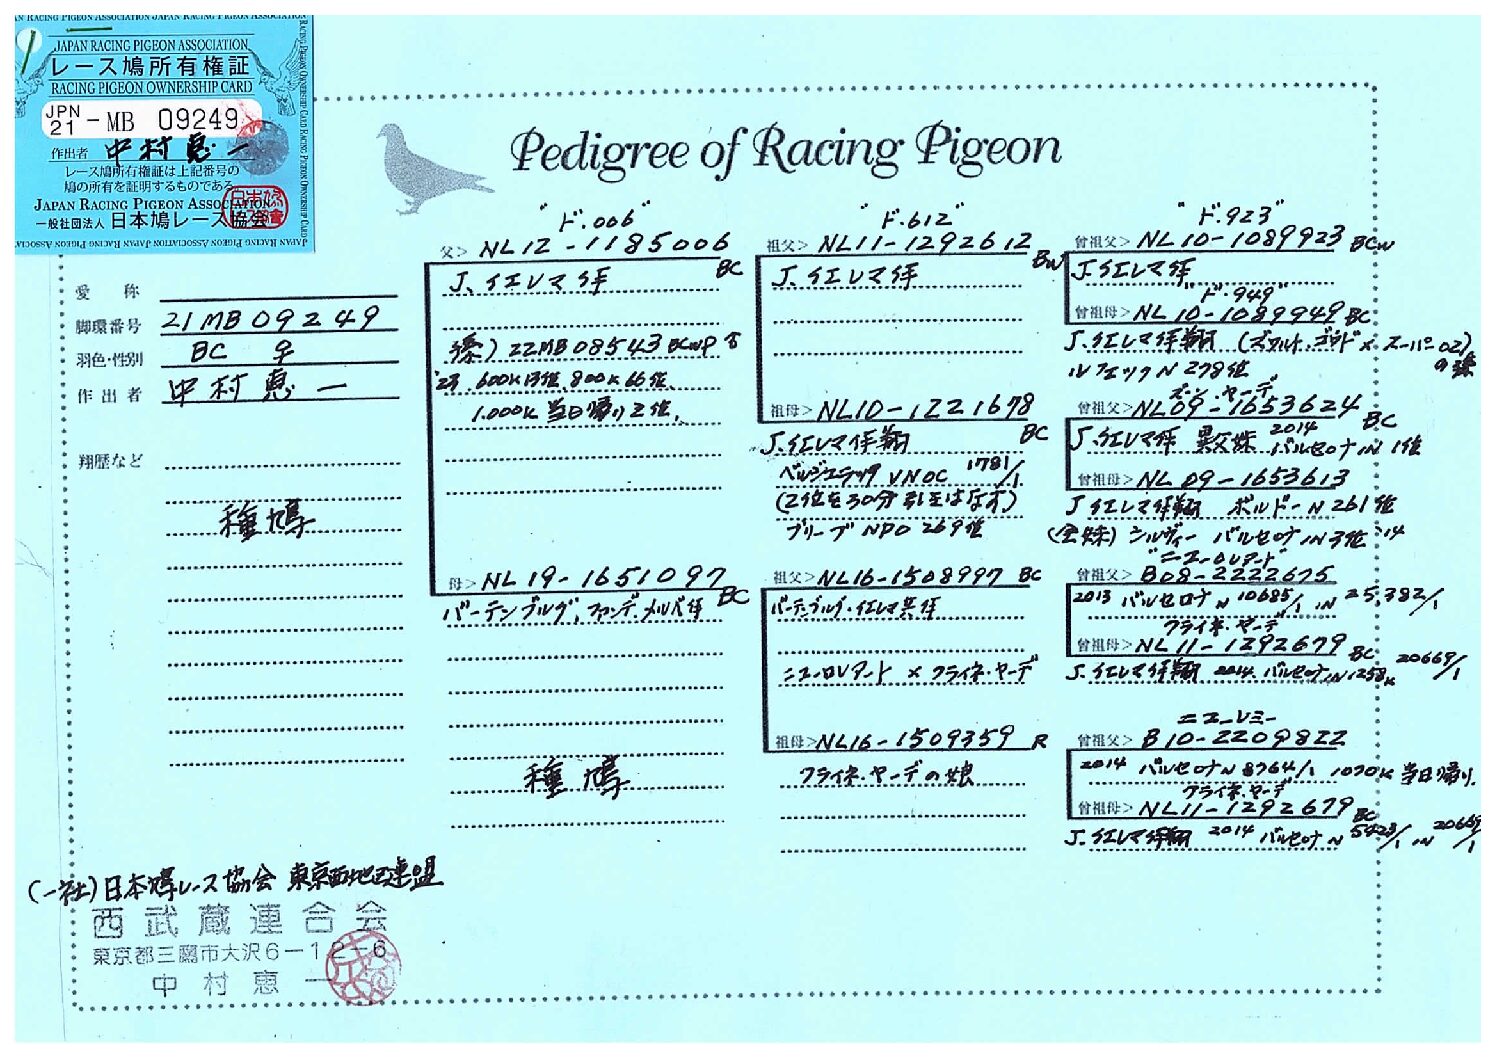 JAPAN RACING PIGEON ASSOCIATION
レース鳩所有権証
RACING PIGEON OWNERSHIP CARD
JPN 21 - MB 09249
作出者 中村恵一
レース鳩所有権証は上記番号の
鳩の所有を証明するものである
JAPAN RACING PIGEON ASSOCIATION
一般社団法人 日本鳩レース協会
Pedigree of Racing Pigeon
愛 称
脚環番号 21MB09249
羽色・性別 BC ♀
作出者 中村恵一
翔歴など
種鳩
"ド.006"
父> NL12-1185006
BC
J.イエレマ作
22MB08543 BCWP
600K 13位 800K 66位
1.000K 当日帰り2位
母> NL19-1651097
BC
バーテンブルグ,ファンデ.メルパ作
種鳩
"ド.612"
祖父> NL11-1292612
BW
J.イエレマ作
祖母> NL10-1221678
BC
J.イエレマ作翔
VNOC 1781/1
(2位を30分引きはなす)
ブリーブ NPO 269位
祖父> NL16-1508997 BC
バーテンブルグ・イエレマ共作
ニューロレアード × クライネ・ヤーデ
祖母> NL16-1509359 R
クライネ・ヤーデの娘
"ド.923"
曾祖父> NL10-1089923 BCW
J.イエレマ作
"ド.949"
曾祖母> NL10-1089949 BC
J.イエレマ作翔 (ズワルト.ゴウド × スーパー02)
N 278位
ズン.ヤーデ
曾祖父> NL09-1653624
BC
J.イエレマ作 異父妹 2014
バルセロナN 1位
曾祖母> NL09-1653613
J イエレマ作翔 ボルドーN 261位
(全妹) シルヴィー バルセロナN 3位 '14
"ニューロレアード"
曾祖父> B08-2222675
2013 バルセロナN 10685/1 IN 25,382/1
クライネ.ヤーデ
曾祖母> NL11-1292679 BC
J.イエレマ作翔 2014 バルセロナN 1258 20669/1
ニューレミー
曾祖父> B10-2209822
2014 バルセロナN 8764/1 1070K 当日帰り
クライネ.ヤーデ
曾祖母> NL11-1292679 BC
J.イエレマ作翔 2014 バルセロナN 5423/1 IN 20669/1
(一社)日本鳩レース協会 東京西地区連盟
西武蔵連合会
東京都三鷹市大沢6-12-6
中村恵一